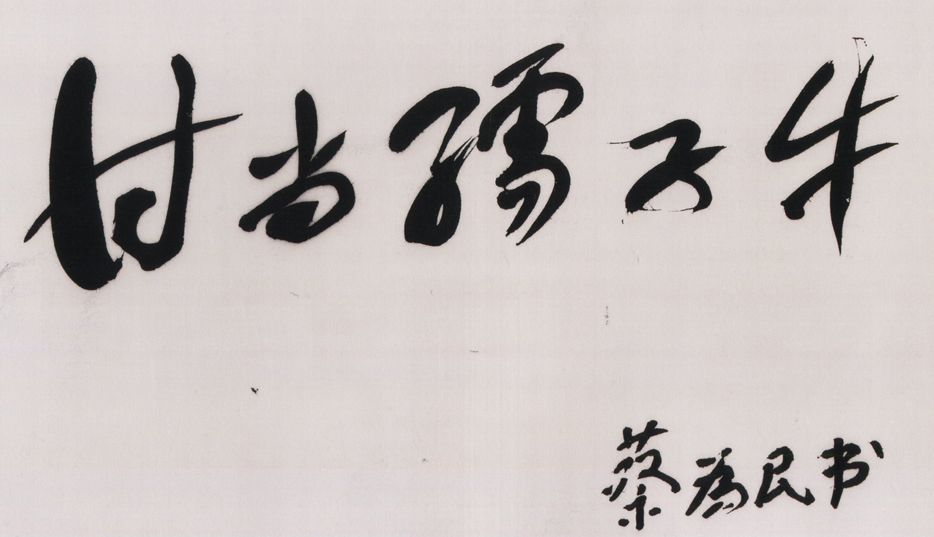 甘当孺子牛
蔡为民书